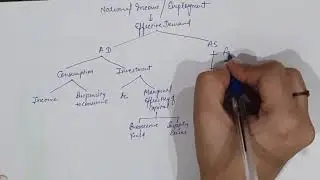 National Income / Employment
Effective Demand
AD
AS
Consumption
Investment
Income
Propensity
to consume
Marginal
Efficiency of
Capital
Prospective
Yield
Supply